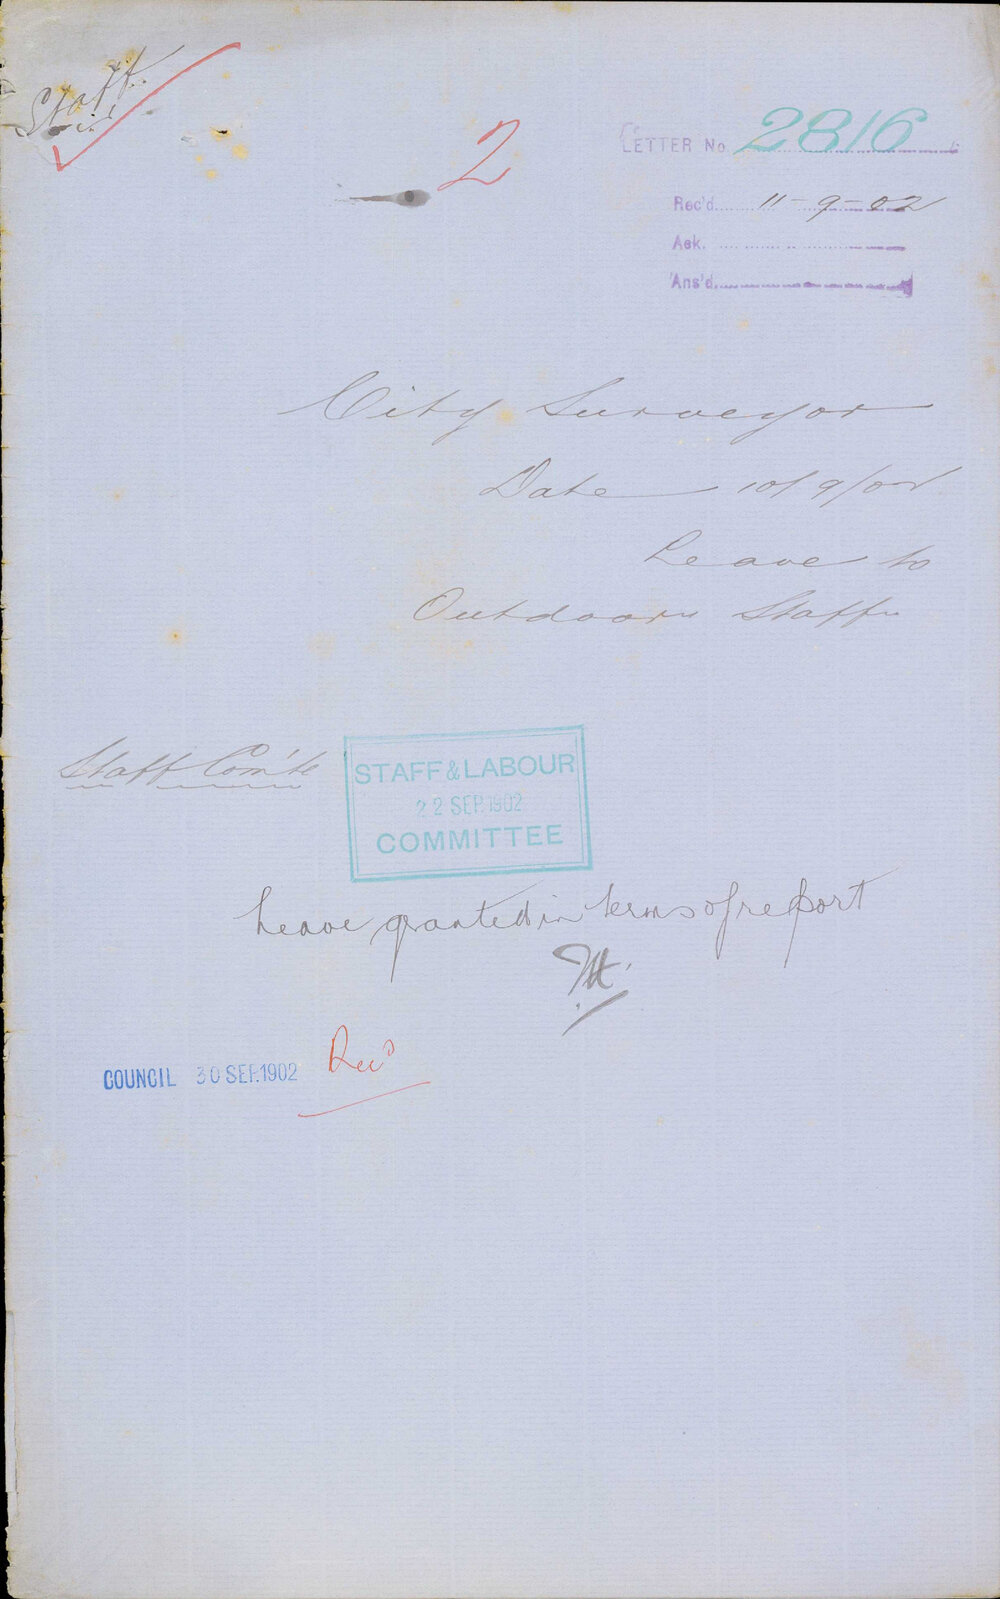 Staff.
2
LETTER No 2816
Rec'd 11-9-02
Ack.
Ans'd.
City Surveyor
Date 10/9/02
Leave to
Outdoor Staff
Staff Com'te
STAFF & LABOUR
22 SEP. 1902
COMMITTEE
Leave granted in terms of report
COUNCIL 30 SEP. 1902 Rec'd